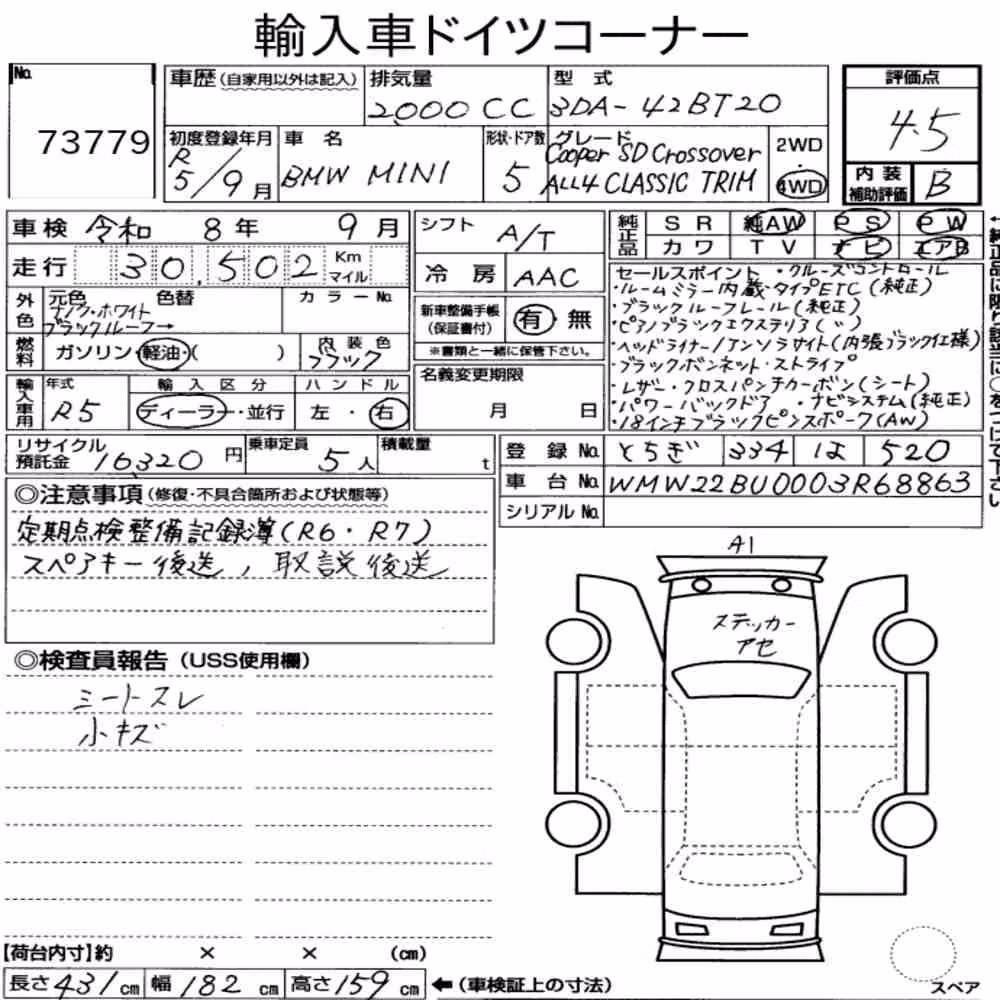 輸入車ドイツコーナー
No.
73779
車歴(自家用以外は記入)
排気量
2000 CC
型式
3DA-42BT20
評価点
4.5
初度登録年月
R
5/9月
車名
BMW MINI
形状・ドア数
5
グレード
Cooper SD Crossover
ALL4 CLASSIC TRIM
2WD
4WD
内装
補助評価
B
車検 令和 8年 9月
走行 30,502 Km
マイル
シフト
A/T
冷房
AAC
純正品
SR 純AW PS PW
カワ TV ナビ エアB
外色
元色 色替
ナノク・ホワイト
ブラックルーフ→
カラーNo.
燃料
ガソリン・軽油・( )
内装色
ブラック
新車整備手帳
(保証書付)
有 無
※書類と一緒に保管下さい。
セールスポイント ・クルーズコントロール
・ルームミラー内蔵・タイプETC(純正)
・ブラックルーフレール(純正)
・ピアノブラックエクステリア(〃)
・ヘッドライナー/アンソラサイト(内張ブラック仕様)
・ブラックボンネット・ストライプ
・レザー・クロスパンチカーボン(シート)
・パワーバックドア ・ナビシステム(純正)
・18インチブラックピンスポーク(AW)
輸入車用
年式
R5
輸入区分
ディーラー・並行
ハンドル
左・右
名義変更期限
月 日
リサイクル
預託金 16320円
乗車定員
5人
積載量
t
登録No. とちぎ 334 は 520
車台No. WMW22BU0003R68863
シリアルNo.
◎注意事項(修復・不具合箇所および状態等)
定期点検整備記録簿(R6・R7)
スペアキー後送, 取説後送
◎検査員報告(USS使用欄)
シートスレ
小キズ
A1
ステッカー
アセ
【荷台内寸】約 × × (cm)
長さ431cm 幅182cm 高さ159cm ←(車検証上の寸法)
スペア